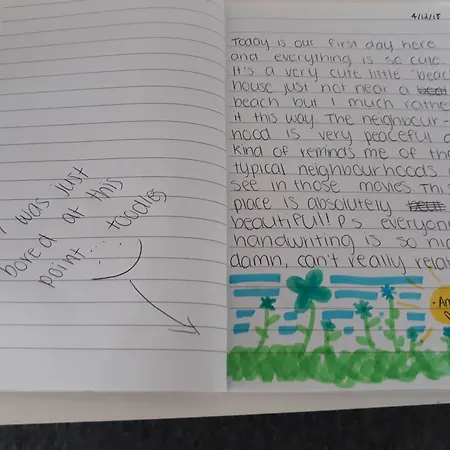 I was just
bored at this
point... toodles
4/12/18
Today is our first day here
and everything is so cute.
It's a very cute little "beac
house just not near a
beach but I much rathe
it this way. The neighbour-
hood is very peaceful a
kind of reminds me of tho
typical neighbourhoods
see in those movies. This
place is absolutely
beautiful!! Ps everyone
handwriting is so nic
damn, can't really rela